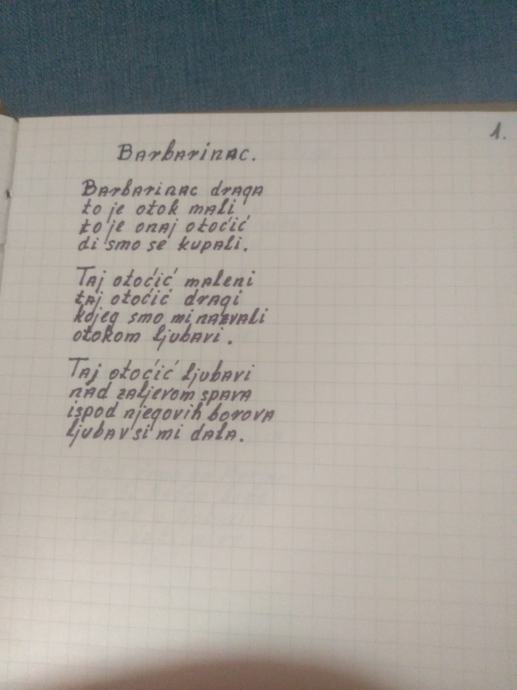 1.
Barbarinac.
Barbarinac draga
to je otok mali
to je onaj otočić
di smo se kupali.
Taj otočić maleni
taj otočić dragi
kojeg smo mi nazvali
otokom ljubavi.
Taj otočić ljubavi
nad zaljevom spava
ispod njegovih borova
ljubav si mi dala.